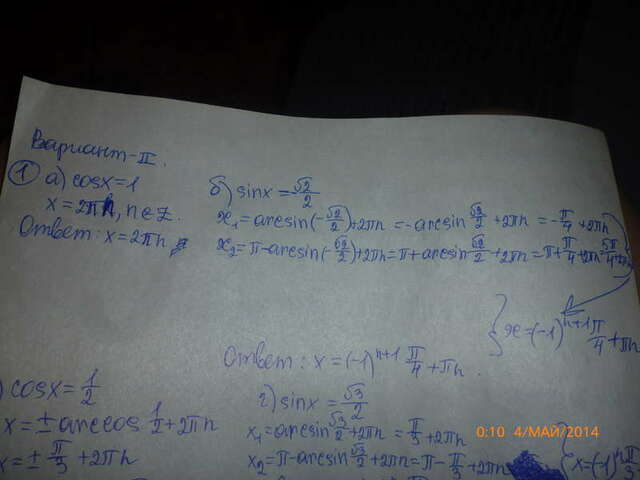 Вариант-II.
① а) cosx=1
x=2πn, n∈Z.
Ответ: x=2πn
б) sinx=√2/2
x₁=arcsin(-√2/2)+2πn=-arcsin√2/2+2πn=-π/4+2πn
x₂=π-arcsin(-√2/2)+2πn=π+arcsin√2/2+2πn=π+π/4+2πn=5π/4+2πn
x=(-1)ⁿ⁺¹π/4+πn
Ответ: x=(-1)ⁿ⁺¹π/4+πn.
) cosx=1/2
x=±arccos1/2+2πn
x=±π/3+2πn
г) sinx=√3/2
x₁=arcsin√3/2+2πn=π/3+2πn
x₂=π-arcsin√3/2+2πn=π-π/3+2πn
x=(-1)ⁿπ/3
0:10 4/МАЙ/2014